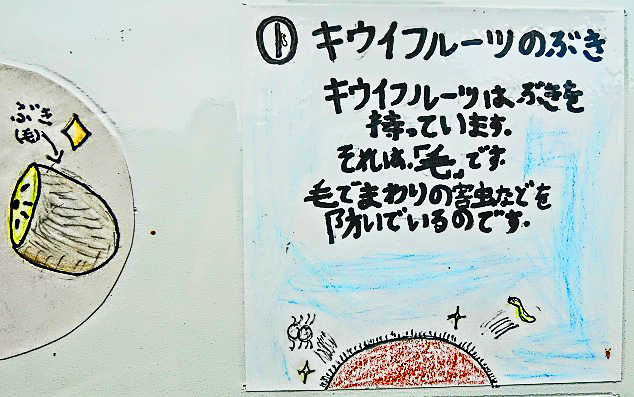 ぶき
(毛)
① キウイフルーツのぶき
キウイフルーツは、ぶきを
持っています。
それは、「毛」です。
毛でまわりの害虫などを
防いでいるのです。